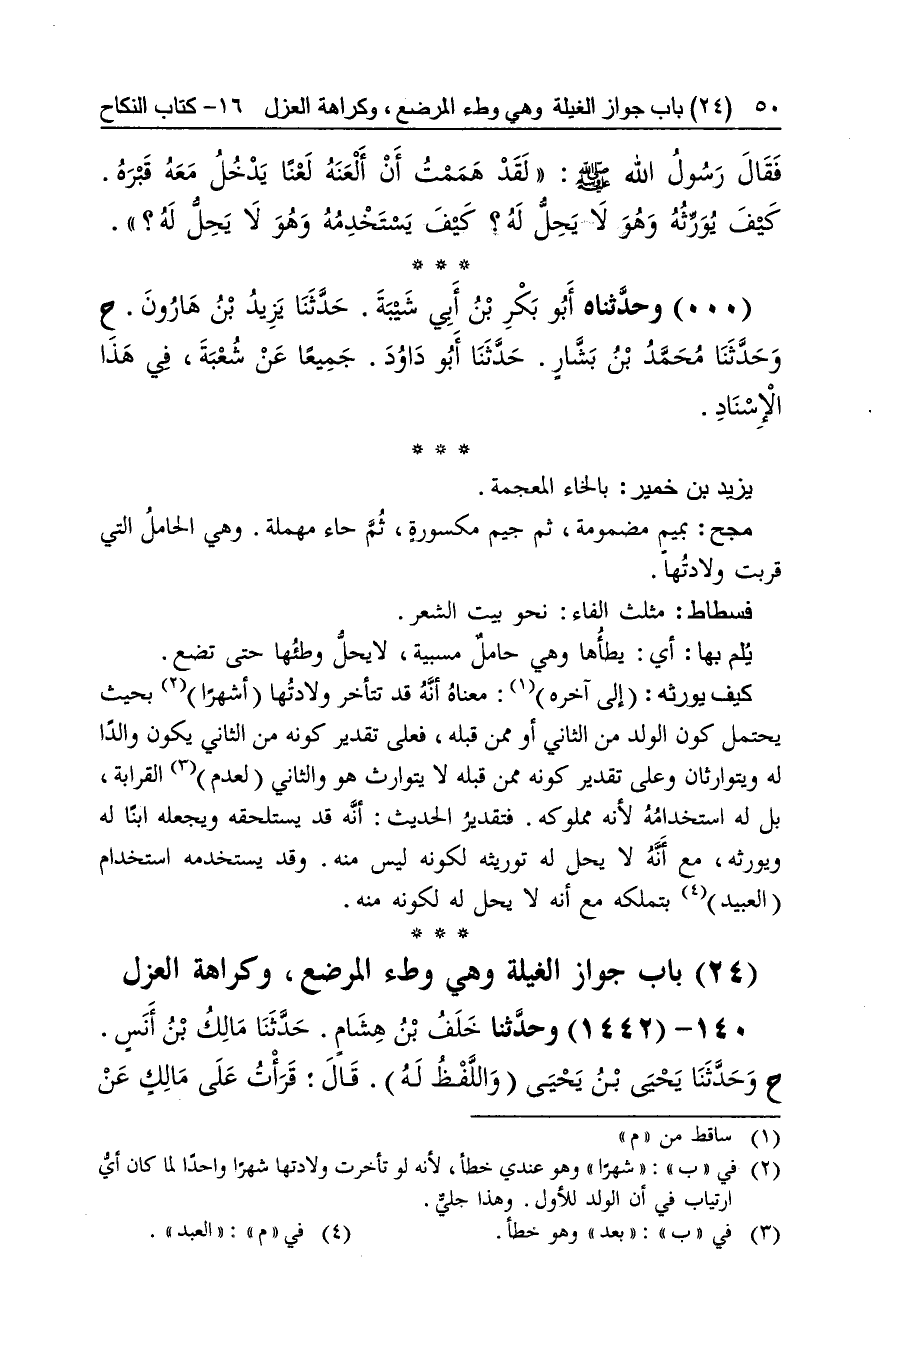 ٥٠ (٢٤) باب جواز الغيلة وهي وطء المرضع ، وكراهة العزل ١٦- كتاب النكاح
فَقَالَ رَسُولُ اللهِ ﷺ : « لَقَدْ هَمَمْتُ أَنْ أَلْعَنَهُ لَعْنًا يَدْخُلُ مَعَهُ قَبْرَهُ .
كَيْفَ يُوَرِّثُهُ وَهُوَ لَا يَحِلُّ لَهُ ؟ كَيْفَ يَسْتَخْدِمُهُ وَهُوَ لَا يَحِلُّ لَهُ ؟ » .
* * *
(٠٠٠) وحدَّثناه أَبُو بَكْرِ بْنُ أَبِي شَيْبَةَ . حَدَّثَنَا يَزِيدُ بْنُ هَارُونَ . ح
وَحَدَّثَنَا مُحَمَّدُ بْنُ بَشَّارٍ . حَدَّثَنَا أَبُو دَاوُدَ . جَمِيعًا عَنْ شُعْبَةَ ، فِي هَذَا
الْإِسْنَادِ .
* * *
يزيد بن خمير : بالخاء المعجمة .
مجح : بميم مضمومة ، ثم جيم مكسورةٍ ، ثُمَّ حاء مهملة . وهي الحاملُ التي
قربت ولادتُها .
فسطاط : مثلث الفاء : نحو بيت الشعر .
يُلم بها : أي : يطأُها وهي حاملٌ مسبية ، لايحلُّ وطئُها حتى تضع .
كيف يورثه : (إلى آخره)(١) : معناهُ أنَّهُ قد تتأخر ولادتُها (أشهرًا)(٢) بحيث
يحتمل كون الولد من الثاني أو ممن قبله ، فعلى تقدير كونه من الثاني يكون والدًا
له ويتوارثان وعلى تقدير كونه ممن قبله لا يتوارث هو والثاني (لعدم)(٣) القرابة ،
بل له استخدامُهُ لأنه مملوكه . فتقديرُ الحديث : أنَّه قد يستلحقه ويجعله ابنًا له
ويورثه ، مع أنَّهُ لا يحل له توريثه لكونه ليس منه . وقد يستخدمه استخدام
(العبيد)(٤) بتملكه مع أنه لا يحل له لكونه منه .
* * *
(٢٤) باب جواز الغيلة وهي وطء المرضع ، وكراهة العزل
١٤٠- (١٤٤٢) وحدَّثنا خَلَفُ بْنُ هِشَامٍ . حَدَّثَنَا مَالِكُ بْنُ أَنَسٍ .
ح وَحَدَّثَنَا يَحْيَى بْنُ يَحْيَى (وَاللَّفْظُ لَهُ) . قَالَ : قَرَأْتُ عَلَى مَالِكٍ عَنْ
(١) ساقط من «م»
(٢) في «ب» : «شهرًا» وهو عندي خطأ ، لأنه لو تأخرت ولادتها شهرًا واحدًا لما كان أيُّ
ارتياب في أن الولد للأول . وهذا جليٌّ .
(٣) في «ب» : «بعد» وهو خطأ . (٤) في «م» : «العبد» .